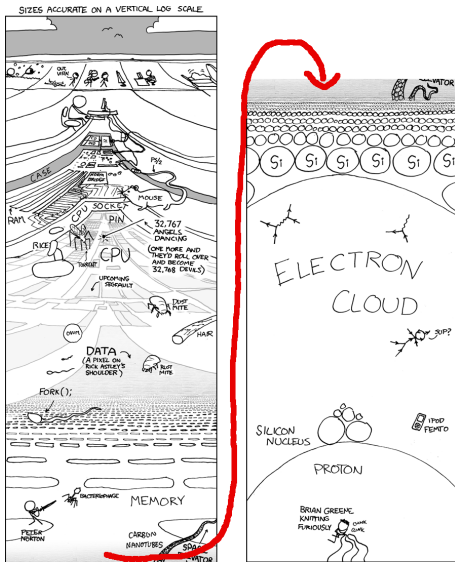 SIZES ACCURATE ON A VERTICAL LOG SCALE
CASE
PS/2
MOUSE
RAM
CPU SOCKET
PIN
32,767
ANGELS
DANCING
(ONE MORE AND
THEY'D ROLL OVER
AND BECOME
32,768 DEVILS)
RICE
TORRENT
CPU
UPCOMING
SEGFAULT
DUST
MITE
OVUM
HAIR
DATA
(A PIXEL ON
RICK ASTLEY'S
SHOULDER)
DUST
MITE
FORK();
BACTERIOPHAGE
MEMORY
PETER
NORTON
CARBON
NANOTUBES
SPACE
ELEVATOR
Si Si Si Si Si Si
ELECTRON
CLOUD
SUP?
SILICON
NUCLEUS
IPOD
FEMTO
PROTON
BRIAN GREENE
KNITTING
FURIOUSLY